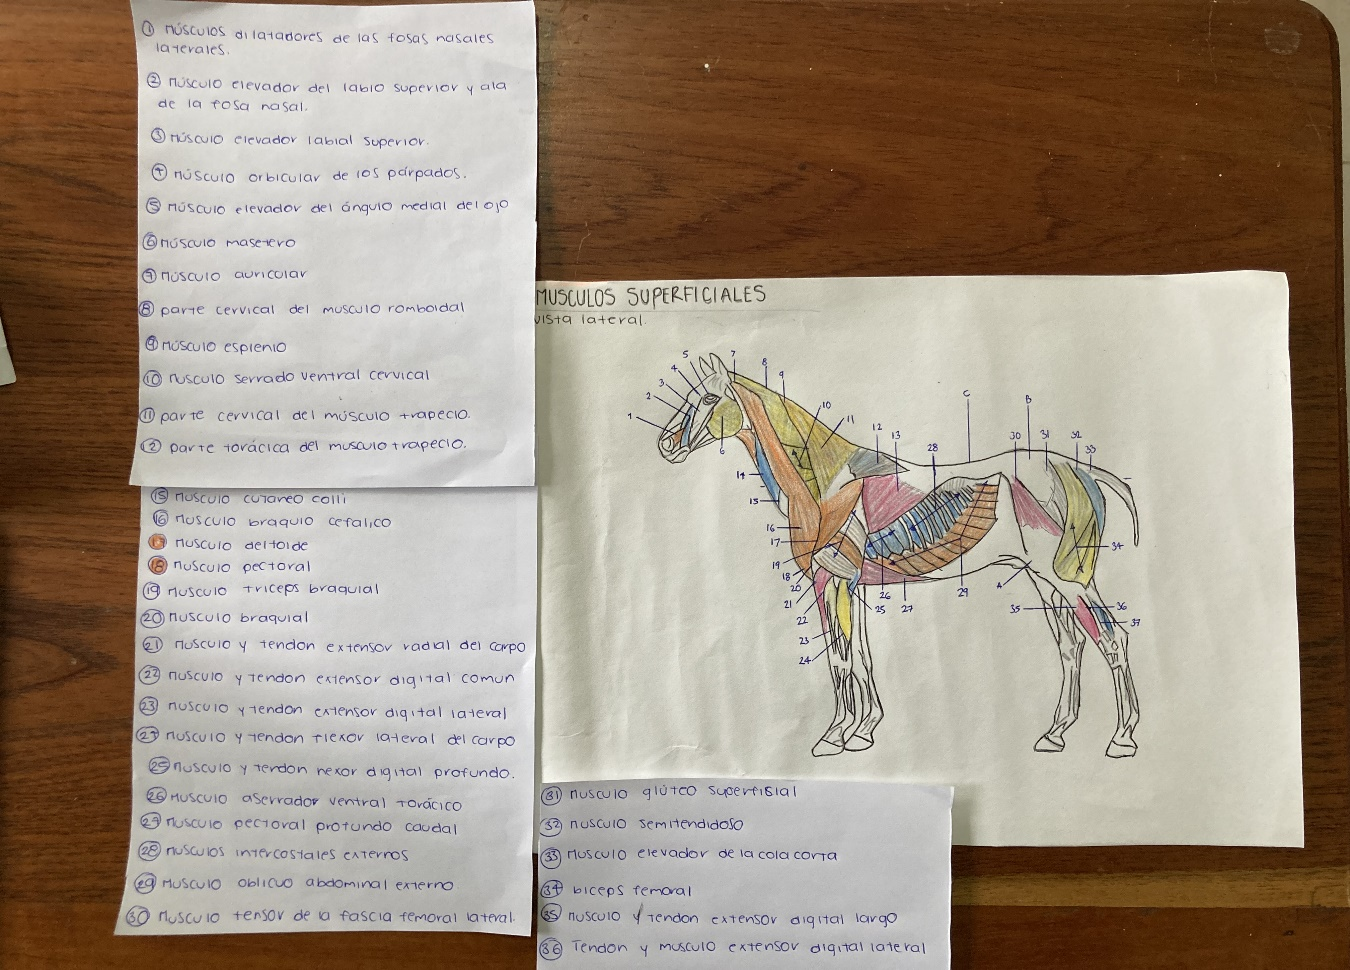 ① músculos dilatadores de las fosas nasales
laterales.
② músculo elevador del labio superior y ala
de la fosa nasal.
③ músculo elevador labial superior.
④ músculo orbicular de los párpados.
⑤ músculo elevador del ángulo medial del ojo
⑥ músculo masetero
⑦ músculo auricular
⑧ parte cervical del musculo romboidal
⑨ músculo esplenio
⑩ musculo serrado ventral cervical
⑪ parte cervical del músculo trapecio.
⑫ parte torácica del musculo trapecio.
⑮ musculo cutaneo colli
⑯ musculo braquio cefalico
⑰ musculo deltoide
⑱ musculo pectoral
⑲ musculo triceps braquial
⑳ musculo braquial
㉑ musculo y tendon extensor radial del carpo
㉒ musculo y tendon extensor digital comun
㉓ musculo y tendon extensor digital lateral
㉔ musculo y tendon flexor lateral del carpo
㉕ musculo y tendon flexor digital profundo.
㉖ musculo aserrador ventral torácico
㉗ musculo pectoral profundo caudal
㉘ musculos intercostales externos
㉙ musculo oblicuo abdominal externo
㉚ musculo tensor de la fascia femoral lateral.
MUSCULOS SUPERFICIALES
vista lateral.
1
2
3
4
5
6
7
8
9
10
11
12
13
28
C
B
30
31
32
33
14
15
16
17
18
19
20
21
22
23
24
25
26
27
29
A
34
35
36
37
㉛ musculo glúteo superfisial
㉜ musculo semitendidoso
㉝ musculo elevador de la cola corta
㉞ biceps femoral
㉟ musculo y tendon extensor digital largo
㊱ Tendon y musculo extensor digital lateral